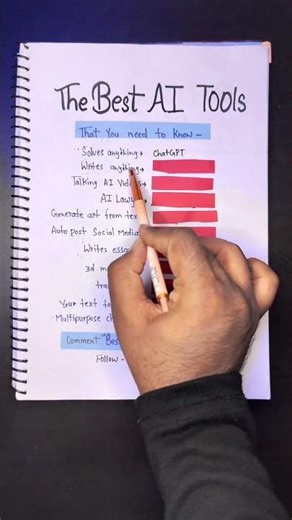 The Best AI Tools
That You need to know -
Solves anything → ChatGPT
Writes anything →
Talking AI Videos →
AI Lawyer
Generate art from text
Auto post Social Media
Writes
3d
Your text to
Multipurpose
Comment "Best
Follow -